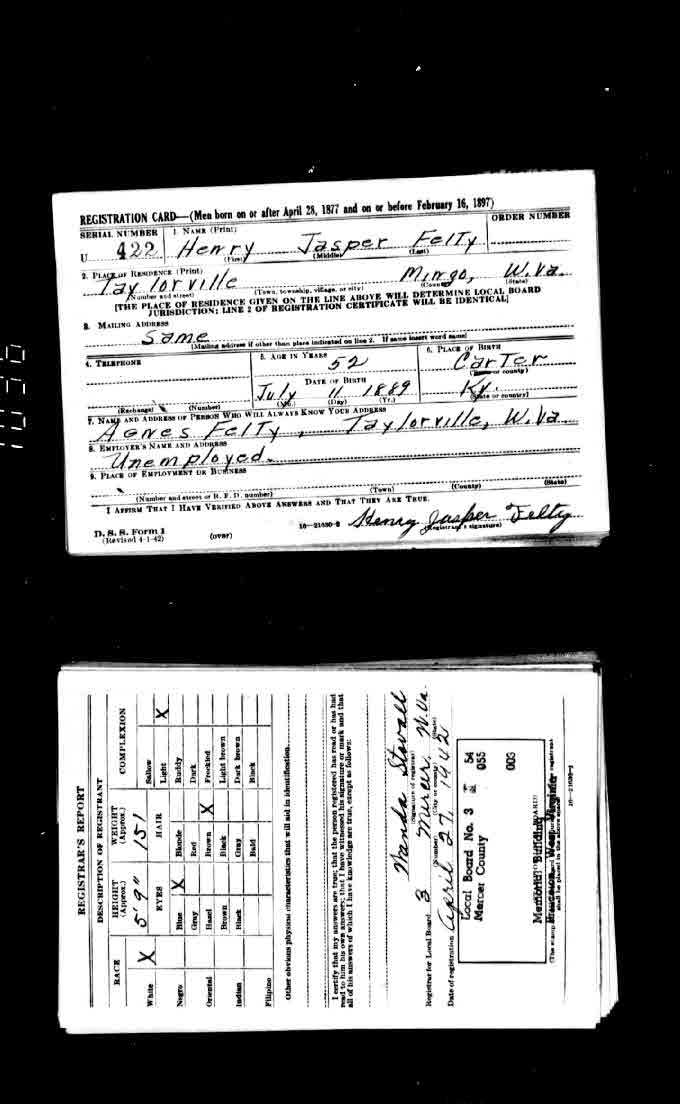 REGISTRATION CARD—(Men born on or after April 28, 1877 and on or before February 16, 1897)
SERIAL NUMBER
1. NAME (Print)
ORDER NUMBER
U 422
Henry Jasper Felty
(First) (Middle) (Last)
2. PLACE OF RESIDENCE (Print)
Taylorville Mingo, W.Va.
(Number and street) (Town, township, village, or city) (County) (State)
[THE PLACE OF RESIDENCE GIVEN ON THE LINE ABOVE WILL DETERMINE LOCAL BOARD
JURISDICTION; LINE 2 OF REGISTRATION CERTIFICATE WILL BE IDENTICAL]
3. MAILING ADDRESS
Same
[Mailing address if other than place indicated on line 2. If same insert word same]
4. TELEPHONE
5. AGE IN YEARS
52
6. PLACE OF BIRTH
Carter
(Town or county)
DATE OF BIRTH
July 11 1889
(Mo.) (Day) (Yr.)
Ky.
(State or country)
(Exchange) (Number)
7. NAME AND ADDRESS OF PERSON WHO WILL ALWAYS KNOW YOUR ADDRESS
Agnes Felty, Taylorville, W.Va
8. EMPLOYER'S NAME AND ADDRESS
Unemployed.
9. PLACE OF EMPLOYMENT OR BUSINESS
(Number and street or R. F. D. number) (Town) (County) (State)
I AFFIRM THAT I HAVE VERIFIED ABOVE ANSWERS AND THAT THEY ARE TRUE.
D. S. S. Form 1
(Revised 4-1-42)
(over)
16—21630-2
Henry Jasper Felty
(Registrant's signature)
REGISTRAR'S REPORT
DESCRIPTION OF REGISTRANT
RACE
HEIGHT (Approx.)
WEIGHT (Approx.)
COMPLEXION
5' 9"
151
White X
EYES
HAIR
Sallow
Light X
Negro
Blue X
Blonde
Ruddy
Gray
Red
Dark
Oriental
Hazel
Brown X
Freckled
Brown
Black
Light brown
Indian
Black
Gray
Dark brown
Bald
Black
Filipino
Other obvious physical characteristics that will aid in identification
I certify that my answers are true; that the person registered has read or has had
read to him his own answers; that I have witnessed his signature or mark and that
all of his answers of which I have knowledge are true, except as follows:
Wanda Stovall
(Signature of registrar)
Registrar for Local Board 3 Mercer, W.Va.
(Number) (City or county) (State)
Date of registration April 27, 1942
Local Board No. 3 54
Mercer County 055
003
Memorial Building
Princeton, West Virginia
16—21630-2